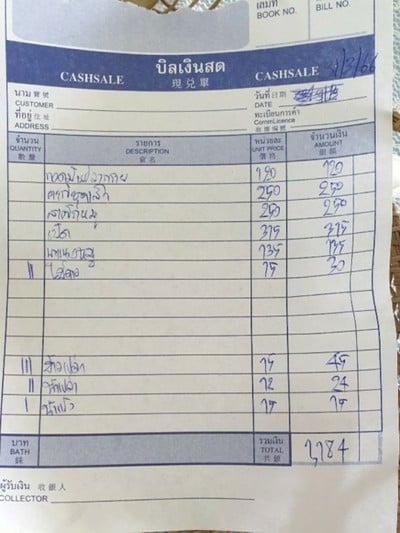 เล่มที่
BOOK NO.
เลขที่
BILL NO.
CASHSALE บิลเงินสด CASHSALE
現兌單
นาม 寶號
CUSTOMER
วันที่ 日期
DATE /3/66
ที่อยู่ 住址
ADDRESS
ทะเบียนการค้า
Comm.Licence
商業編號
จำนวน QUANTITY 數量 รายการ DESCRIPTION 貨名 หน่วยละ UNIT PRICE 價格 จำนวนเงิน AMOUNT 銀額
120 120
250 250
250 250
เป็ด 315 315
135 135
|| ไข่ดาว 15 30
||| ข้าวเปล่า 15 45
|| น้ำเปล่า 12 24
| น้ำแข็ง 15 15
บาท BATH 銖 รวมเงิน TOTAL 共銀 1,184
ผู้รับเงิน 收銀人
COLLECTOR